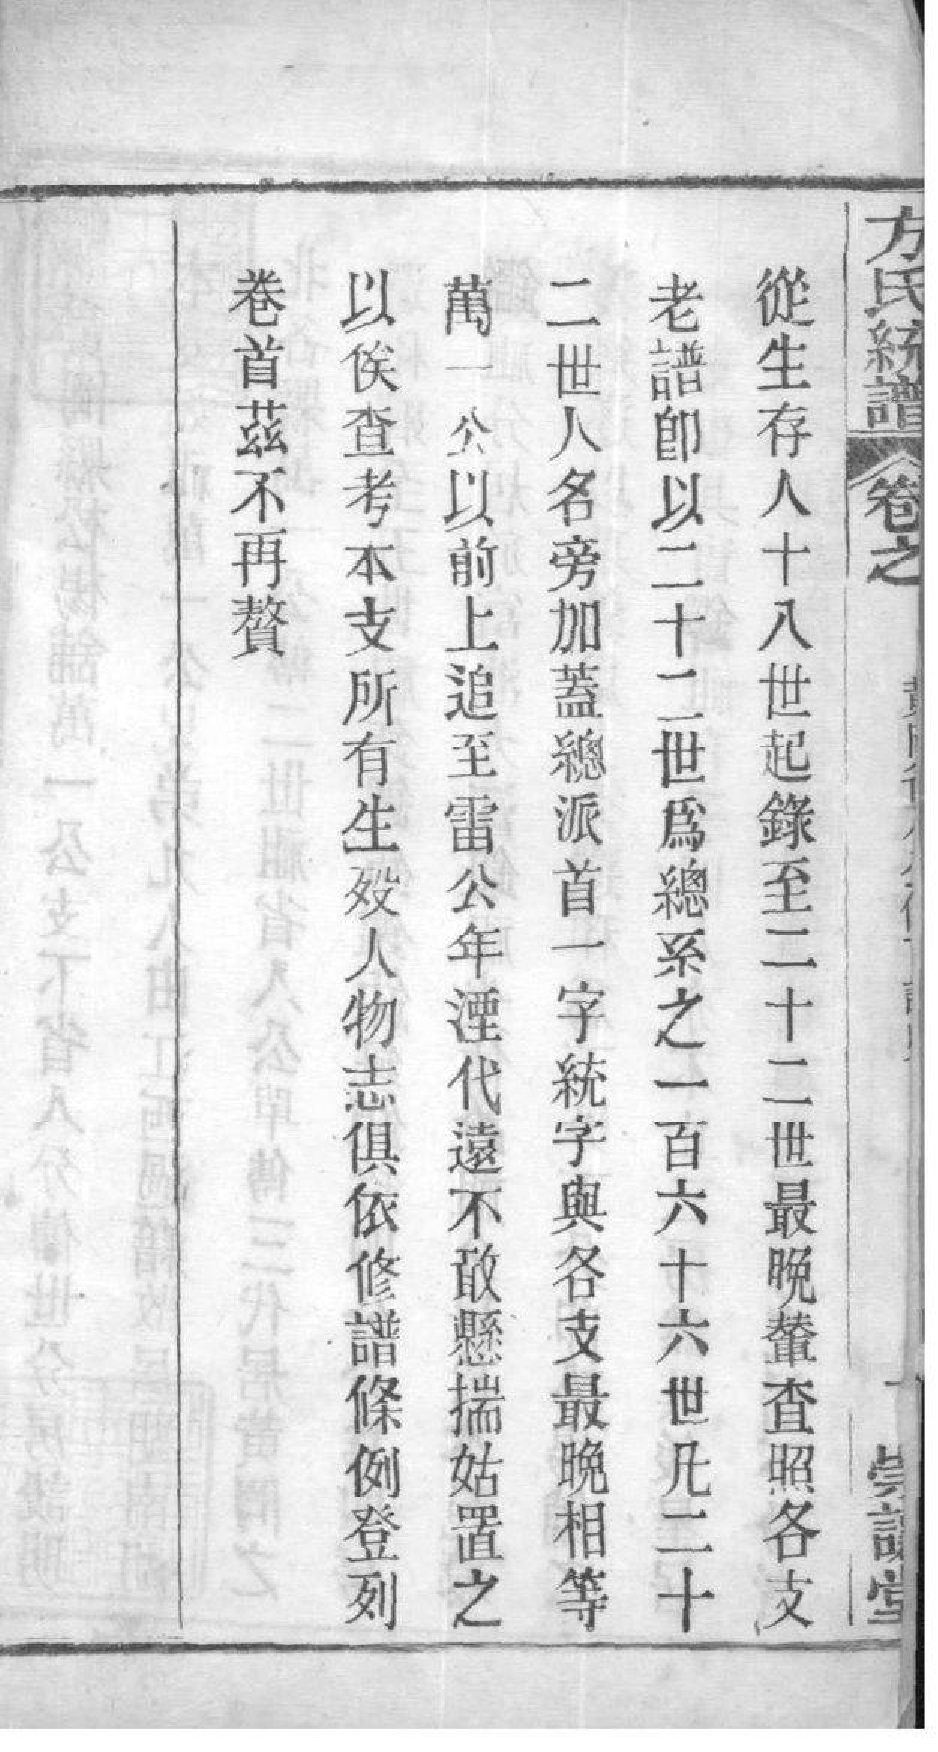 方氏統譜 卷之
從生存人十八世起錄至二十二世最晚輩查照各支
老譜卽以二十二世爲總系之一百六十六世凡二十
二世人名旁加蓋總派首一字統字與各支最晚相等
萬一公以前上追至雷公年湮代遠不敢懸揣姑置之
以俟查考本支所有生歿人物志俱依修譜條例登列
卷首茲不再贅